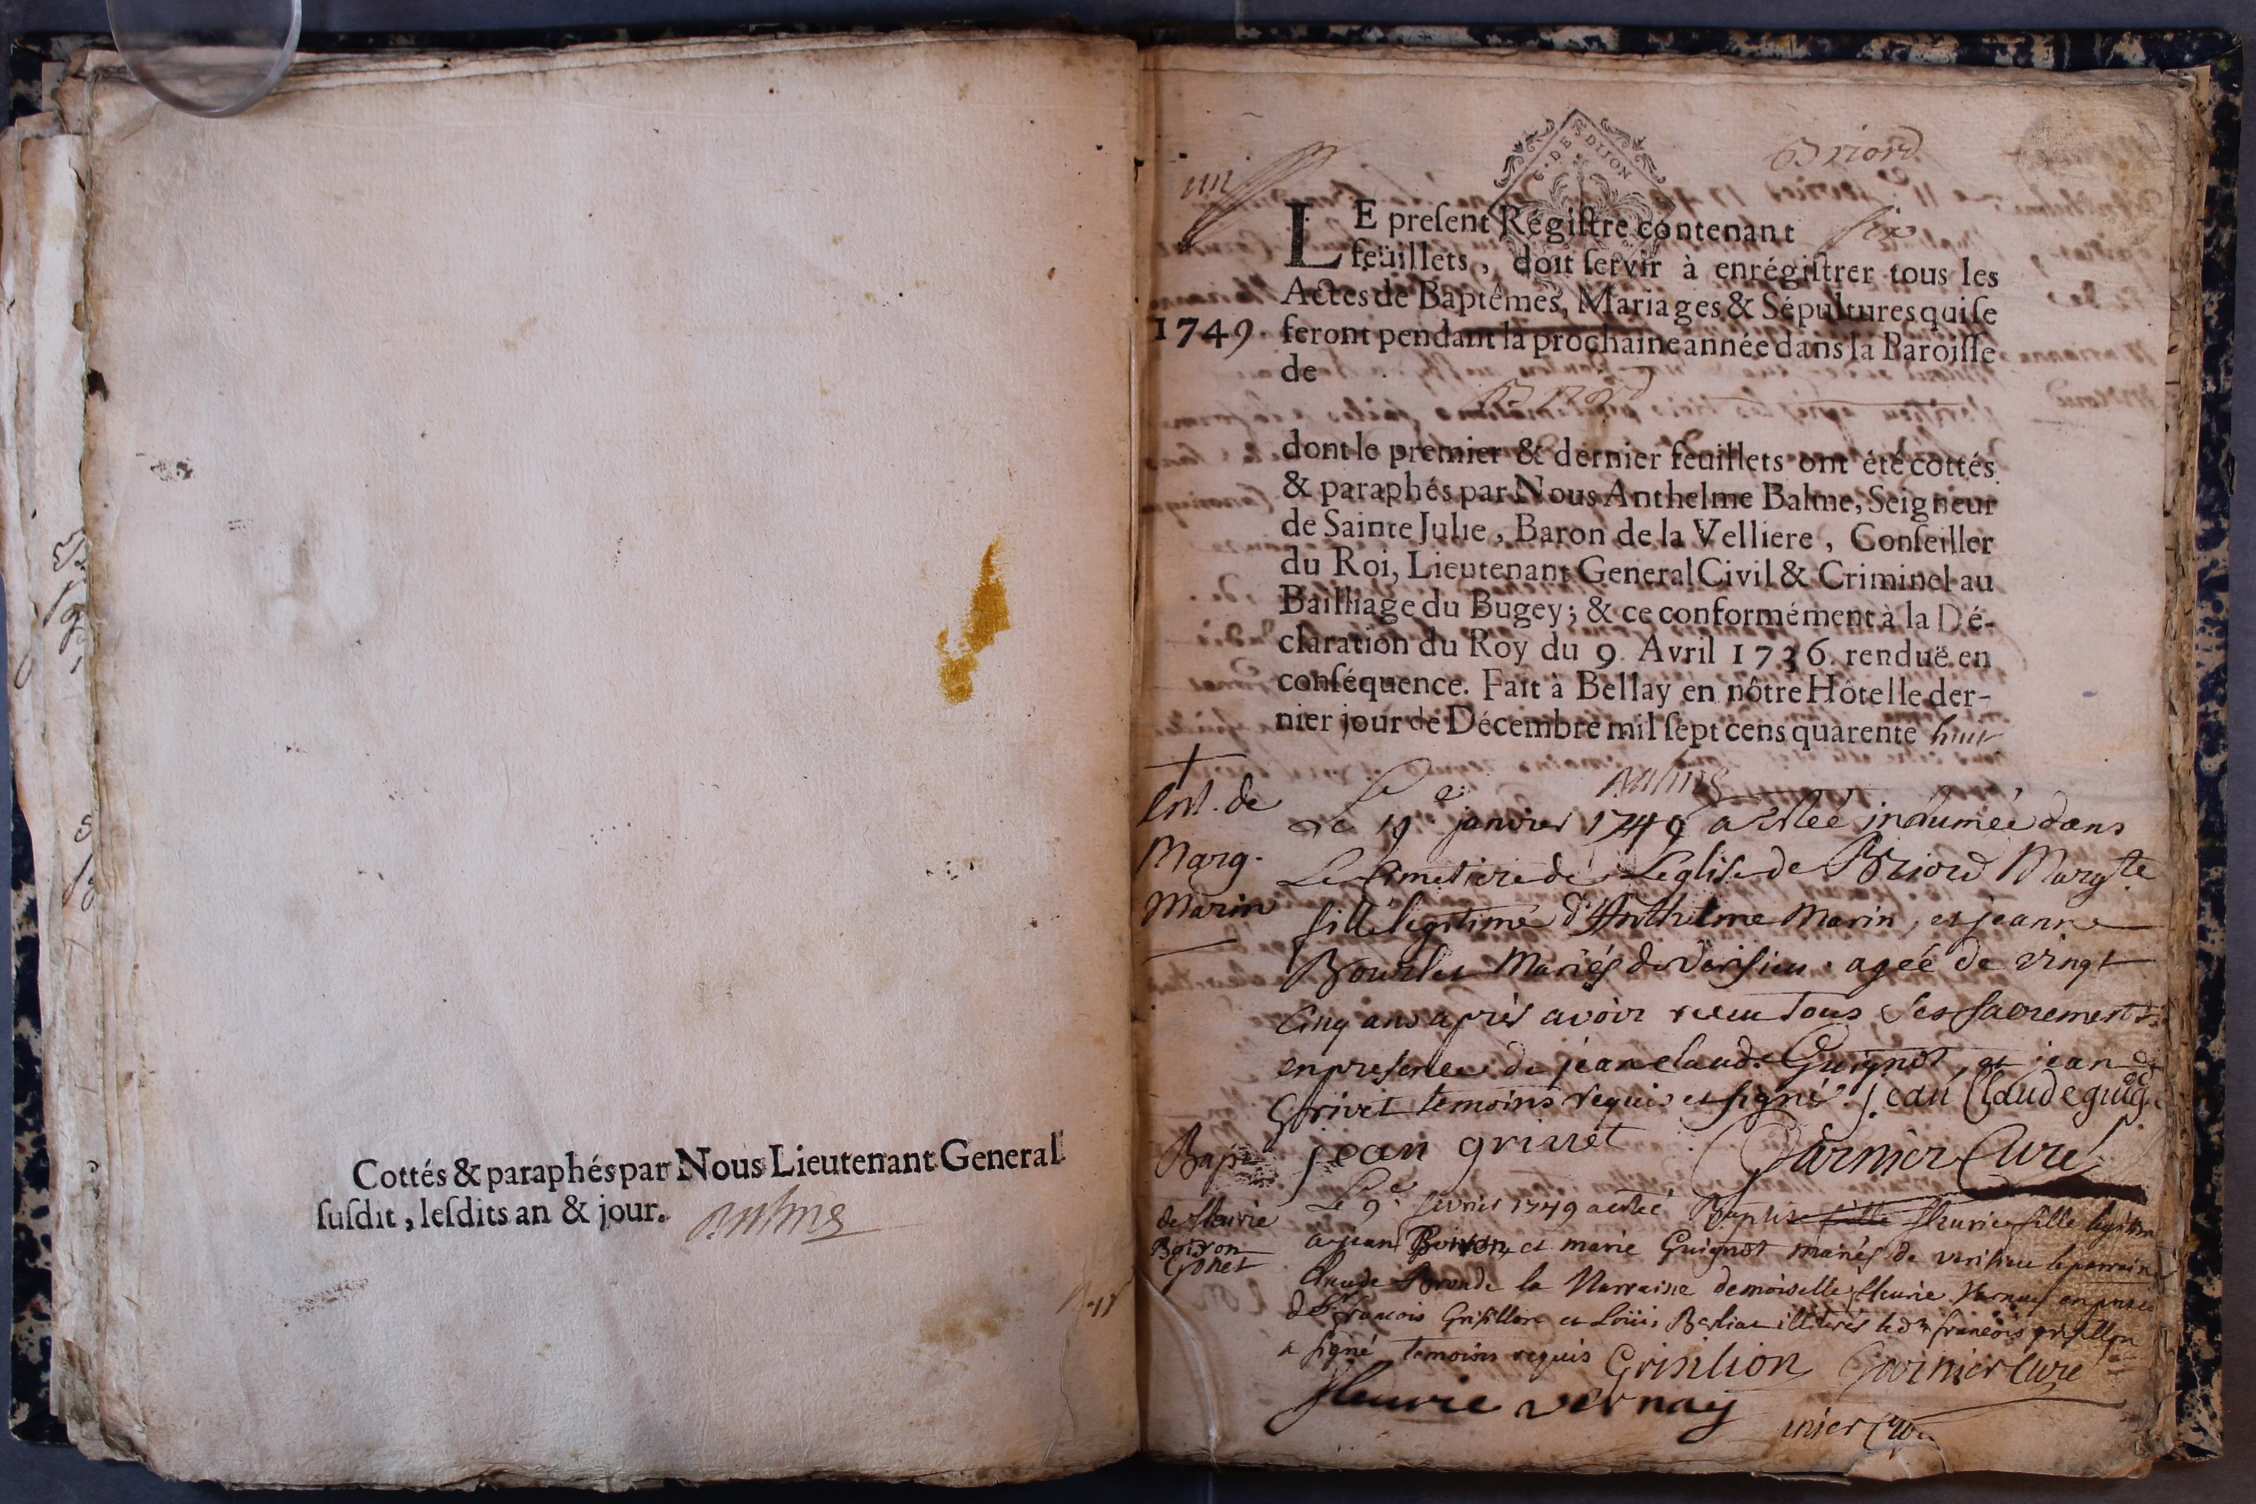 Cottés & paraphés par Nous Lieutenant General
ſuſdit, leſdits an & jour.
G. DE DIJON
Briord
LE preſent Regiſtre contenant ſix
feüillets, doit ſervir à enrégiſtrer tous les
Actes de Baptêmes, Mariages & Sépultures qui ſe
1749. feront pendant la prochaine année dans la Paroiſſe
de Briord
dont le premier & dernier feuillets ont été cottés
& paraphés par Nous Anthelme Balme, Seigneur
de Sainte Julie, Baron de la Velliere, Conſeiller
du Roi, Lieutenant General Civil & Criminel au
Bailliage du Bugey; & ce conformément à la Dé-
claration du Roy du 9. Avril 1736. renduë en
conſéquence. Fait à Bellay en nôtre Hôtel le der-
nier jour de Décembre mil ſept cens quarente huit
Ent. de
Marg.
Marin
Le 19e janvier 1749 a estée inhumée dans
Le Cimetiere de Leglise de Briord Margte
fille legitime d'Anthelme Marin, et jeanne
mariés de Verisieu agée de vingt
Cinq ans après avoir receu tous ses sacrements
en presence de jean claude Guignot, et jean
Grivet temoins requis et signé. Jean Claude guig
jean griuet Garnier Curé
Bap.
de fleurie
Boiron
Le 9e fevrier 1749 a esté Baptisé fleurie fille legitime
a jean Boiron et marie Guignot mariés de verisieu le parrain
Claude la Marraine demoiselle fleurie Vernay en
françois Grisillon et Loüis illiterés le Sr françois grisillon
a signé temoins requis Grisilion Garnier Curé
fleurie vernay